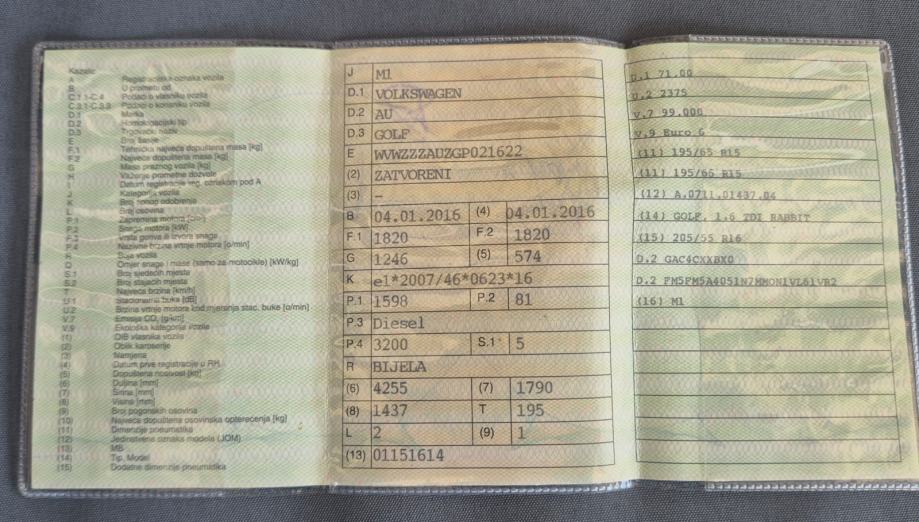 Kazalo:
A Registracijska oznaka vozila
B U prometu od
C.1.1-C.4 Podaci o vlasniku vozila
C.3.1-C.3.3 Podaci o korisniku vozila
D.1 Marka
D.2 Homologacijski tip
D.3 Trgovački naziv
E Broj šasije
F.1 Tehnička najveće dopuštena masa [kg]
F.2 Najveće dopuštena masa [kg]
G Masa praznog vozila [kg]
H Važenje prometne dozvole
I Datum registracije reg. oznakom pod A
J Kategorija vozila
K Broj homol. odobrenja
L Broj osovina
P.1 Zapremina motora [cm³]
P.2 Snaga motora [kW]
P.3 Vrsta goriva ili izvora snage
P.4 Nazivna brzina vrtnje motora [o/min]
R Boja vozila
Q Omjer snage i mase (samo za motocikle) [kW/kg]
S.1 Broj sjedećih mjesta
S.2 Broj stajaćih mjesta
T Najveća brzina [km/h]
U.1 Stacionarna buka [dB]
U.2 Brzina vrtnje motora kod mjerenja stac. buke [o/min]
V.7 Emisija CO₂ [g/km]
V.9 Ekološka kategorija vozila
(1) OIB vlasnika vozila
(2) Oblik karoserije
(3) Namjena
(4) Datum prve registracije u RH
(5) Dopuštena nosivost [kg]
(6) Duljina [mm]
(7) Širina [mm]
(8) Visina [mm]
(9) Broj pogonskih osovina
(10) Najveće dopuštena osovinska opterećenja [kg]
(11) Dimenzije pneumatika
(12) Jedinstvena oznaka modela (JOM)
(13) MB
(14) Tip, Model
(15) Dodatne dimenzije pneumatika
J M1
D.1 VOLKSWAGEN
D.2 AU
D.3 GOLF
E WVWZZZAUZGP021622
(2) ZATVORENI
(3) –
B 04.01.2016 (4) 04.01.2016
F.1 1820 F.2 1820
G 1246 (5) 574
K e1*2007/46*0623*16
P.1 1598 P.2 81
P.3 Diesel
P.4 3200 S.1 5
R BIJELA
(6) 4255 (7) 1790
(8) 1437 T 195
L 2 (9) 1
(13) 01151614
U.1 71.00
U.2 2375
V.7 99.000
V.9 Euro 6
(11) 195/65 R15
(11) 195/65 R15
(12) A.0711.01437.04
(14) GOLF, 1.6 TDI RABBIT
(15) 205/55 R16
D.2 GAC4CXXBX0
D.2
(16) M1